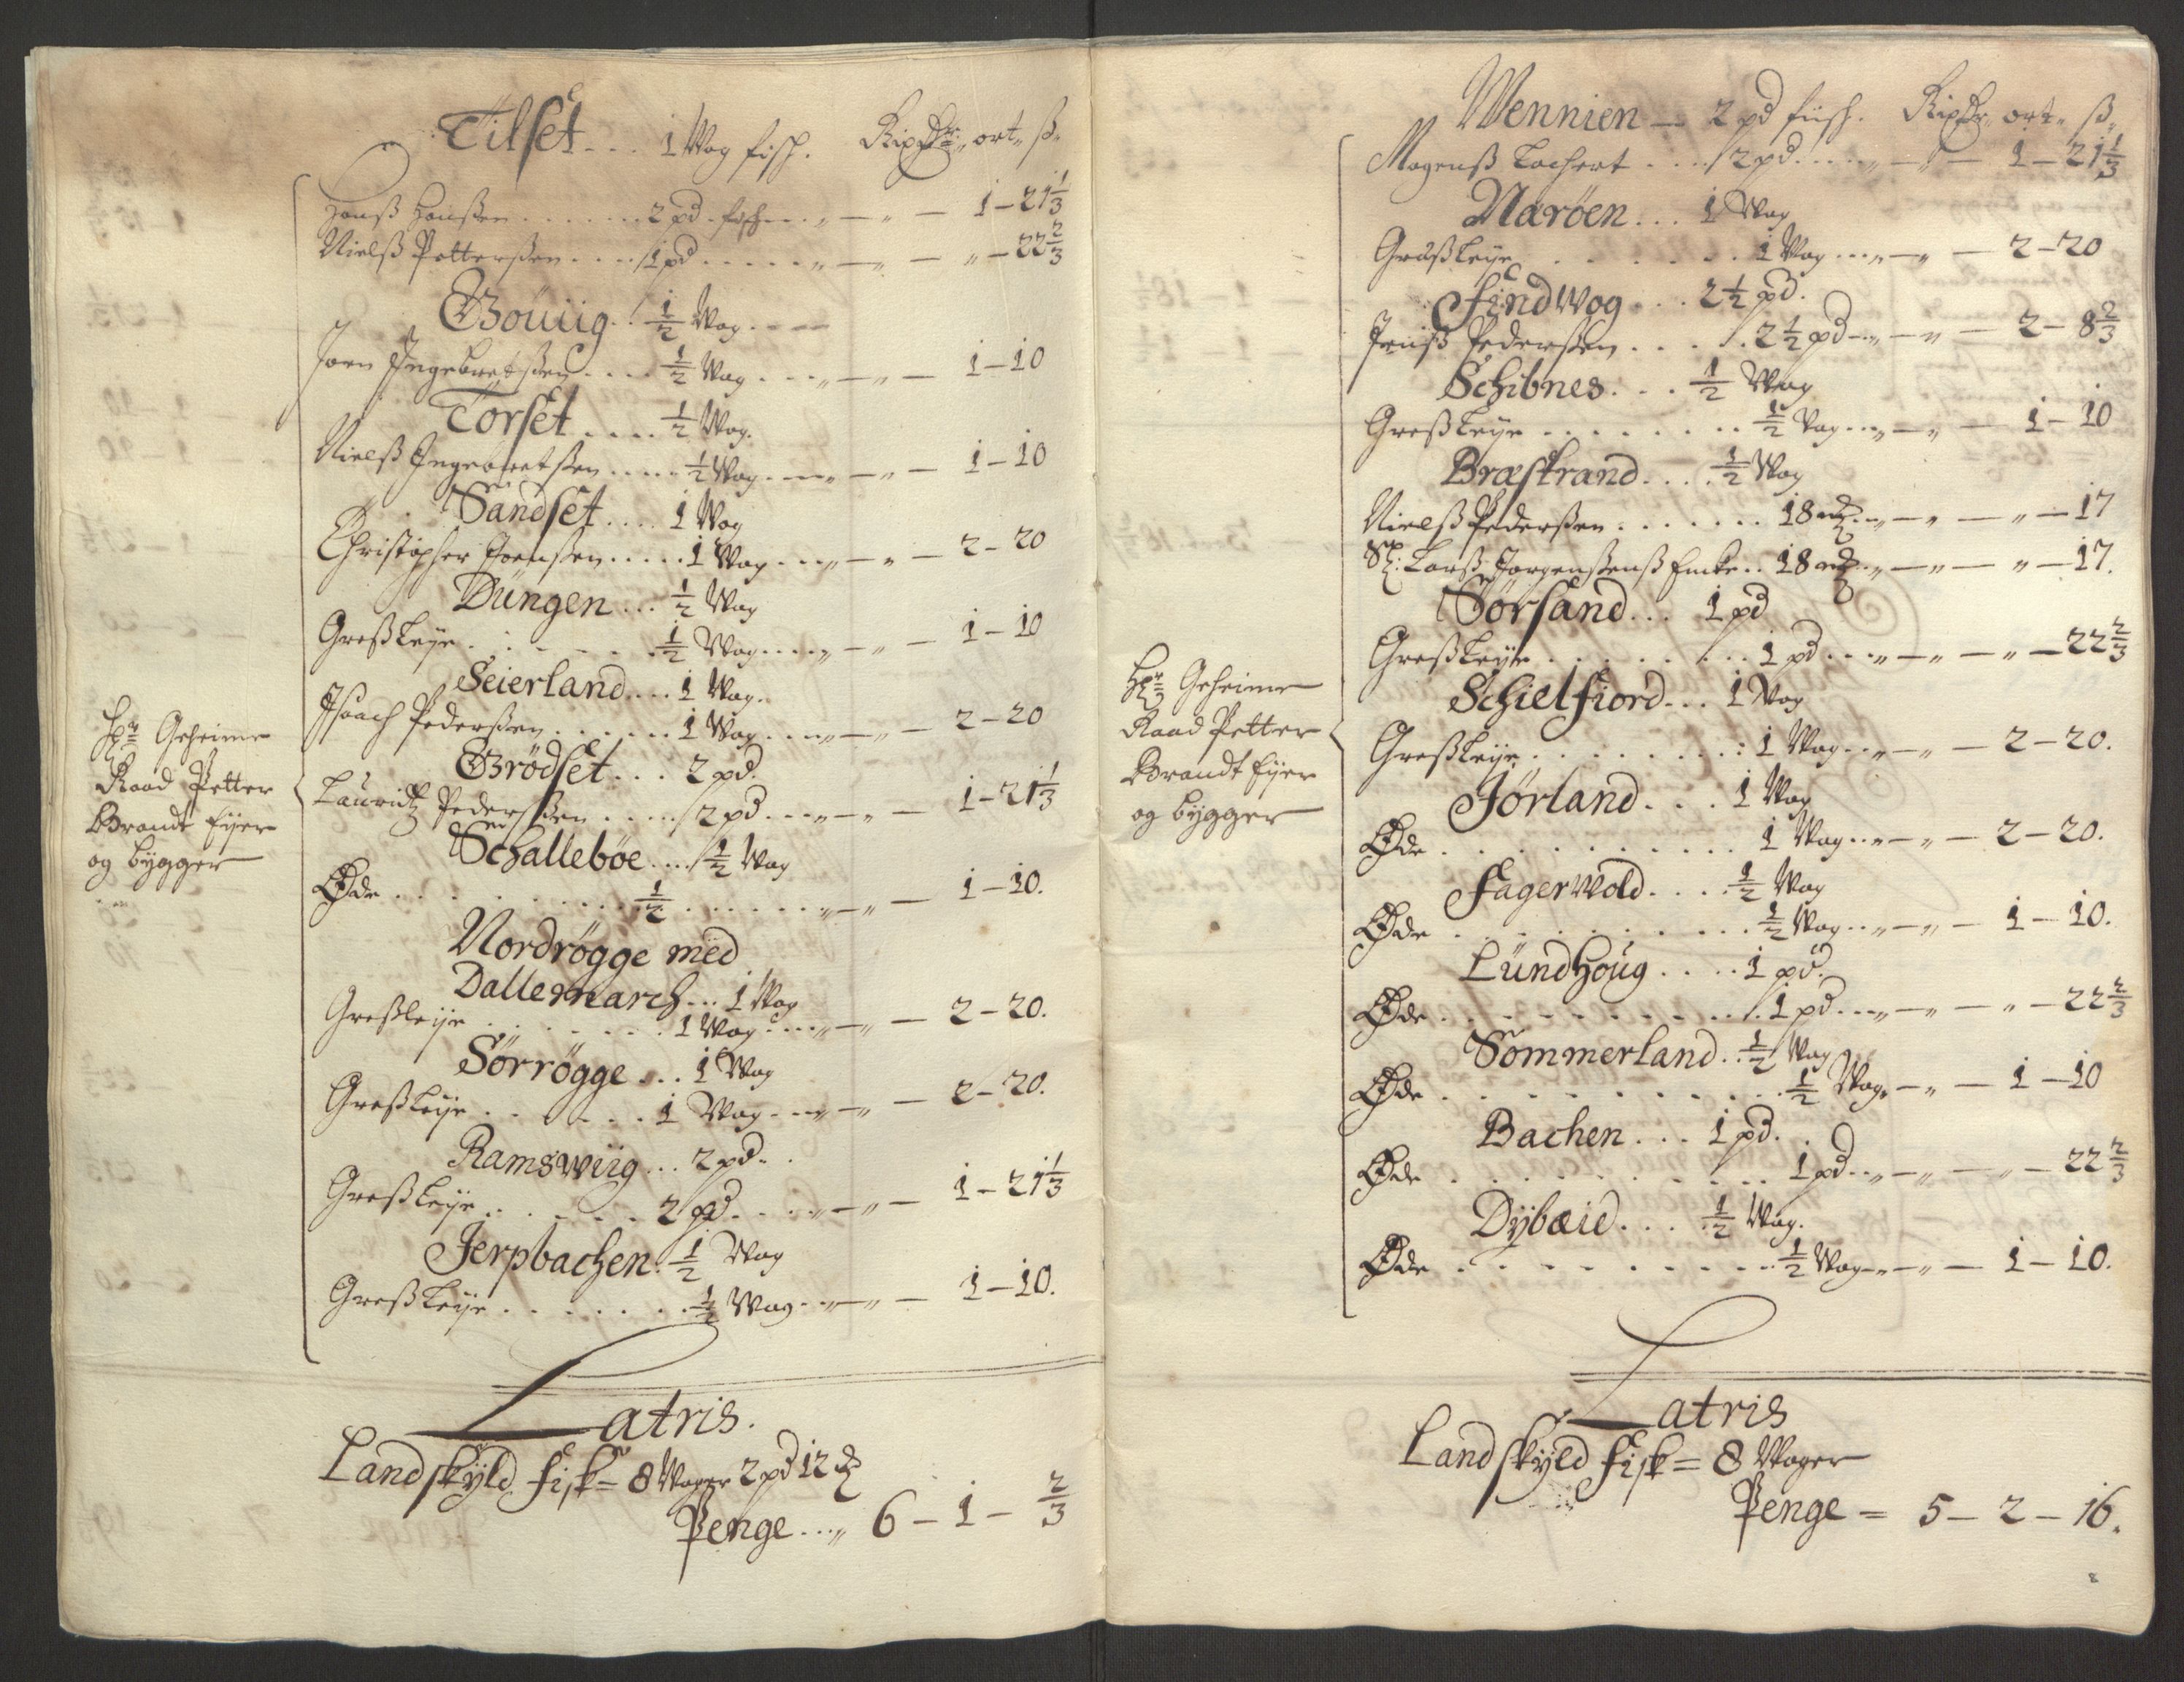 Tilset . . . 1 Wog fisch. Rixdr „ ort „ ß „
Hanß Hanßen . . . . . . 2 pd fisch . . . „ — „ — 1 – 21 1/3
Nielß Petterßen . . . . 1 pd . . . . . „ — „ — „ – 22 2/3
Bouiig . . 1/2 Wog . . . .
Joen Ingebretßen . . . . 1/2 Wog . . . „ — „ — 1 – 10
Torset . . . . 1/2 Wog.
Nielß Ingebretßen . . . . . 1/2 Wog . . . „ — „ — 1 – 10
Sandset . . . . 1 Wog
Christopher Joenßen . . . . . 1 Wog . . . „ — „ — 2 – 20
Düngen . . . 1/2 Wog
Greßleye . . . . . . 1/2 Wog . . . . „ — „ — 1 – 10
Seierland . . . . 1 Wog.
Isaach Pederßen . . . . . . 1 Wog . . . . „ — „ — 2 – 20
Brödset . . . 2 pd.
Lauridtz Pederßen . . . . . 2 pd . . . „ — „ — 1 – 21 1/3
Schalleböe . . . . 1/2 Wog
Øde . . . . . . . . . . 1/2 . . . . . . „ — „ — 1 – 10.
Nordrögge med
Dallemarch . . . 1 Wog
Greßleije . . . . . . . . 1 Wog . . . . „ — „ — 2 – 20.
Sörrögge . . . 1 Wog
Greßleije . . . . . . . 1 Wog . . . „ — „ — 2 – 20.
Ramswiig . . . 2 pd . .
Greßleije . . . . . . 2 pd . . . . „ — „ — 1 – 21 1/3
Jerpbachen . 1/2 Wog
Greßleije . . . . . . . 1/2 Wog . . „ — „ — 1 – 10.
Hr Geheime
Raad Petter
Brandt Eyer
og bygger
Latris.
Landskyld fisk = 8 Woger 2 pd 12
Penge . . . „ 6 – 1 – 2/3
Wennien — 2 pd fiisch. Rixdr „ ort „ ß „
Mogenß Lochert . . . . 2 pd . . . . „ — „ — 1 – 21 1/3
Naröen . . . 1 Wog
Graßleije . . . . . . . 1 Wog . . „ — „ — 2 – 20
Findwog . . . 2 1/2 pd.
Jenß Pederßen . . . . . . 2 1/2 pd . . „ — „ — 2 – 8 2/3
Schibnes . . . 1/2 Wog
Greßleije . . . . . . . . 1/2 Wog . . „ — „ — 1 – 10
Bræstrand . . . . 1/2 Wog
Nielß Pederßen . . . . . . . 18 . . „ — „ — „ — 17
Sl: Larß Jorgenßenß Encke . . 18 . . „ — „ — „ — 17.
Sörsand . . . 1 pd
Greßleije . . . . . . . . 1 pd . . . „ — „ — „ — 22 2/3
Schielfiord . . . 1 Wog
Greßleije . . . . . . . . 1 Wog . . „ — „ — 2 – 20.
Jørland . . . . 1 Wog
Øde . . . . . . . . . . 1 Wog . . „ — „ — 2 – 20.
Fagerwold . . . . 1/2 Wog
Øde . . . . . . . . . . 1/2 Wog . . „ — „ — 1 – 10.
Lündhoüg . . . . 1 pd.
Øde . . . . . . . . . . 1 pd . . . „ — „ — „ — 22 2/3
Sommerland . . 1/2 Wog
Øde . . . . . . . . . . 1/2 Wog „ — „ — 1 – 10
Bachen . . . 1 pd. .
Øde . . . . . . . . . . 1 pd . . „ — „ — „ — 22 2/3
Dÿbæid . . . 1/2 Wog.
Øde . . . . . . . . . . 1/2 Wog . „ — „ — 1 – 10.
Hr Geheime
Raad Petter
Brandt Eyer
og bygger
Latris
Landskyld fisk = 8 Woger
Penge = 5 – 2 – 16.